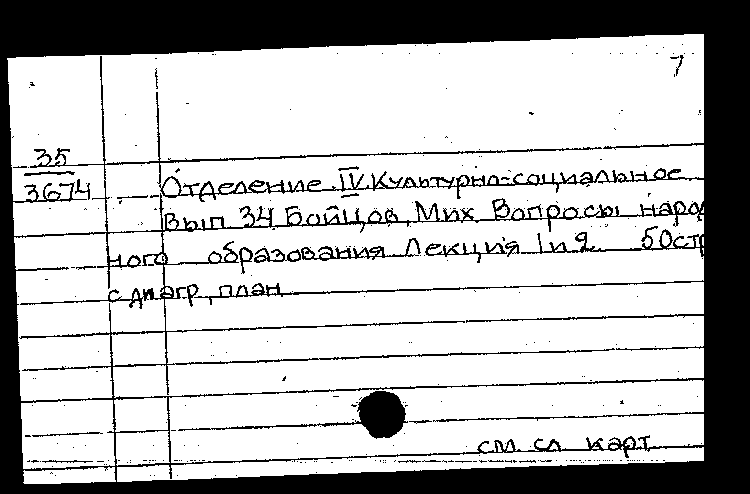 7
35
3674
Отделение IV. Культурно-социальное
Вып 34 Бойцов, Мих. Вопросы народ
ного образования Лекция 1 и 2 50 стр
с диагр., план
см сл карт